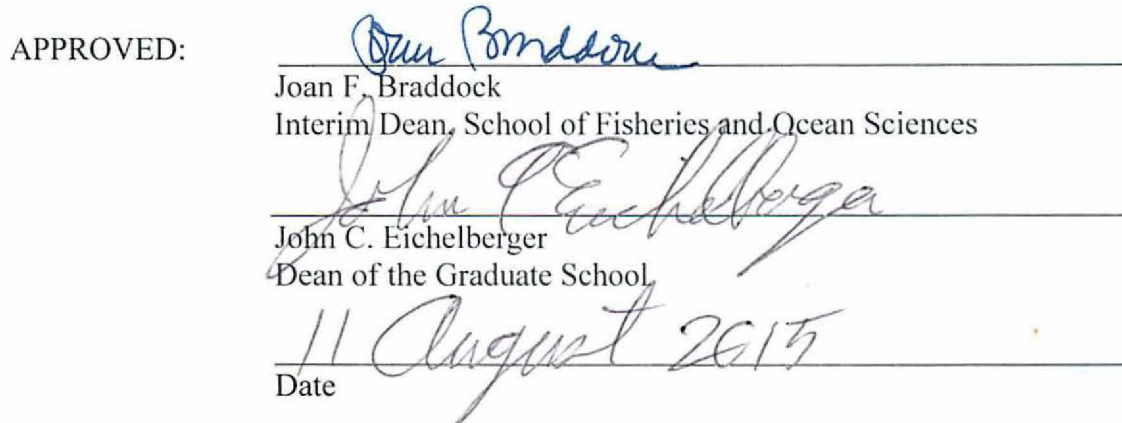 APPROVED:
Joan Braddock
Joan F. Braddock
Interim Dean, School of Fisheries and Ocean Sciences
John C Eichelberger
John C. Eichelberger
Dean of the Graduate School
11 August 2015
Date